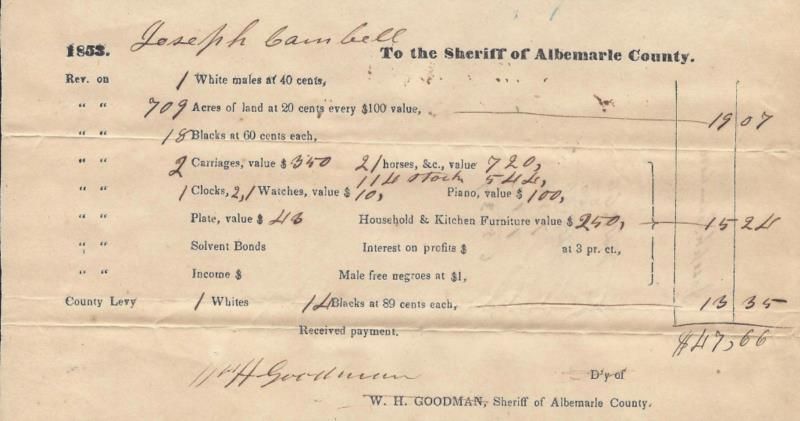 1853. Joseph Cambell To the Sheriff of Albemarle County.
Rev. on 1 White males at 40 cents,
“ “ 709 Acres of land at 20 cents every $100 value, 19 07
“ “ 18 Blacks at 60 cents each,
“ “ 2 Carriages, value $ 350 21 horses, &c., value 720,
114 stock 544,
“ “ 1 Clocks, 2, 1 Watches, value $ 10, Piano, value $ 100,
“ “ Plate, value $ 43 Household & Kitchen Furniture value $ 250, 15 24
“ “ Solvent Bonds Interest on profits $ at 3 pr. ct.,
“ “ Income $ Male free negroes at $1,
County Levy 1 Whites 14 Blacks at 89 cents each, 13 35
Received payment. $47,66
WH Goodman D'y of
W. H. GOODMAN, Sheriff of Albemarle County.